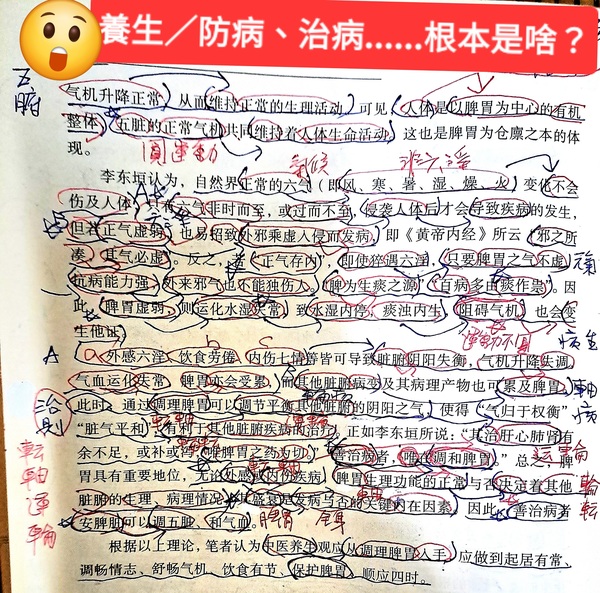 養生／防病、治病......根本是啥？
五腑
气机升降正常，从而维持正常的生理活动，可见，人体是以脾胃为中心的有机
整体，五脏的正常气机共同维持着人体生命活动，这也是脾胃为仓廪之本的体
现。
圓運動
氣候
非六淫
李东垣认为，自然界正常的六气（即风、寒、暑、湿、燥、火）变化不会
伤及人体，只有六气非时而至，或过而不至，侵袭人体后才会导致疾病的发生，
但若正气虚弱，也易招致外邪乘虚人侵而发病，即《黄帝内经》所云“邪之所
凑，其气必虚。”反之，若“正气存内”，即使猝遇六淫，只要脾胃之气不虚，
抗病能力强，外来邪气也不能独伤人。“脾为生痰之源”，“百病多由痰作祟”。因
此，脾胃虚弱，则运化水湿失常，致水湿内停，痰浊内生，阻碍气机，也会变
生他证。
運動不圓
病生
A
外感六淫、饮食劳倦、内伤七情等皆可导致脏腑阴阳失衡，气机升降失调，
气血运化失常，脾胃亦会受累，而其他脏腑病变及其病理产物也可累及脾胃，
此时，通过调理脾胃可以调节平衡其他脏腑的阴阳之气，使得“气归于权衡”，
“脏气平和”，有利于其他脏腑疾病的治疗，正如李东垣所说：“其治肝心肺肾有
余不足，或补或泻，唯脾胃之药为切。”“善治病者，唯在调和脾胃。”总之，脾
胃具有重要地位，无论外感或内伤疾病，脾胃生理功能的正常与否决定着其他
脏腑的生理、病理情况，其盛衰是发病与否的关键内在因素，因此，善治病者
安脾胃可以调五脏、和气血。
治則
轉軸運輪
軸病
運輪
輪轉
脾胃
根据以上理论，笔者认为中医养生观应从调理脾胃人手，应做到起居有常、
调畅情志、舒畅气机、饮食有节、保护脾胃，顺应四时。